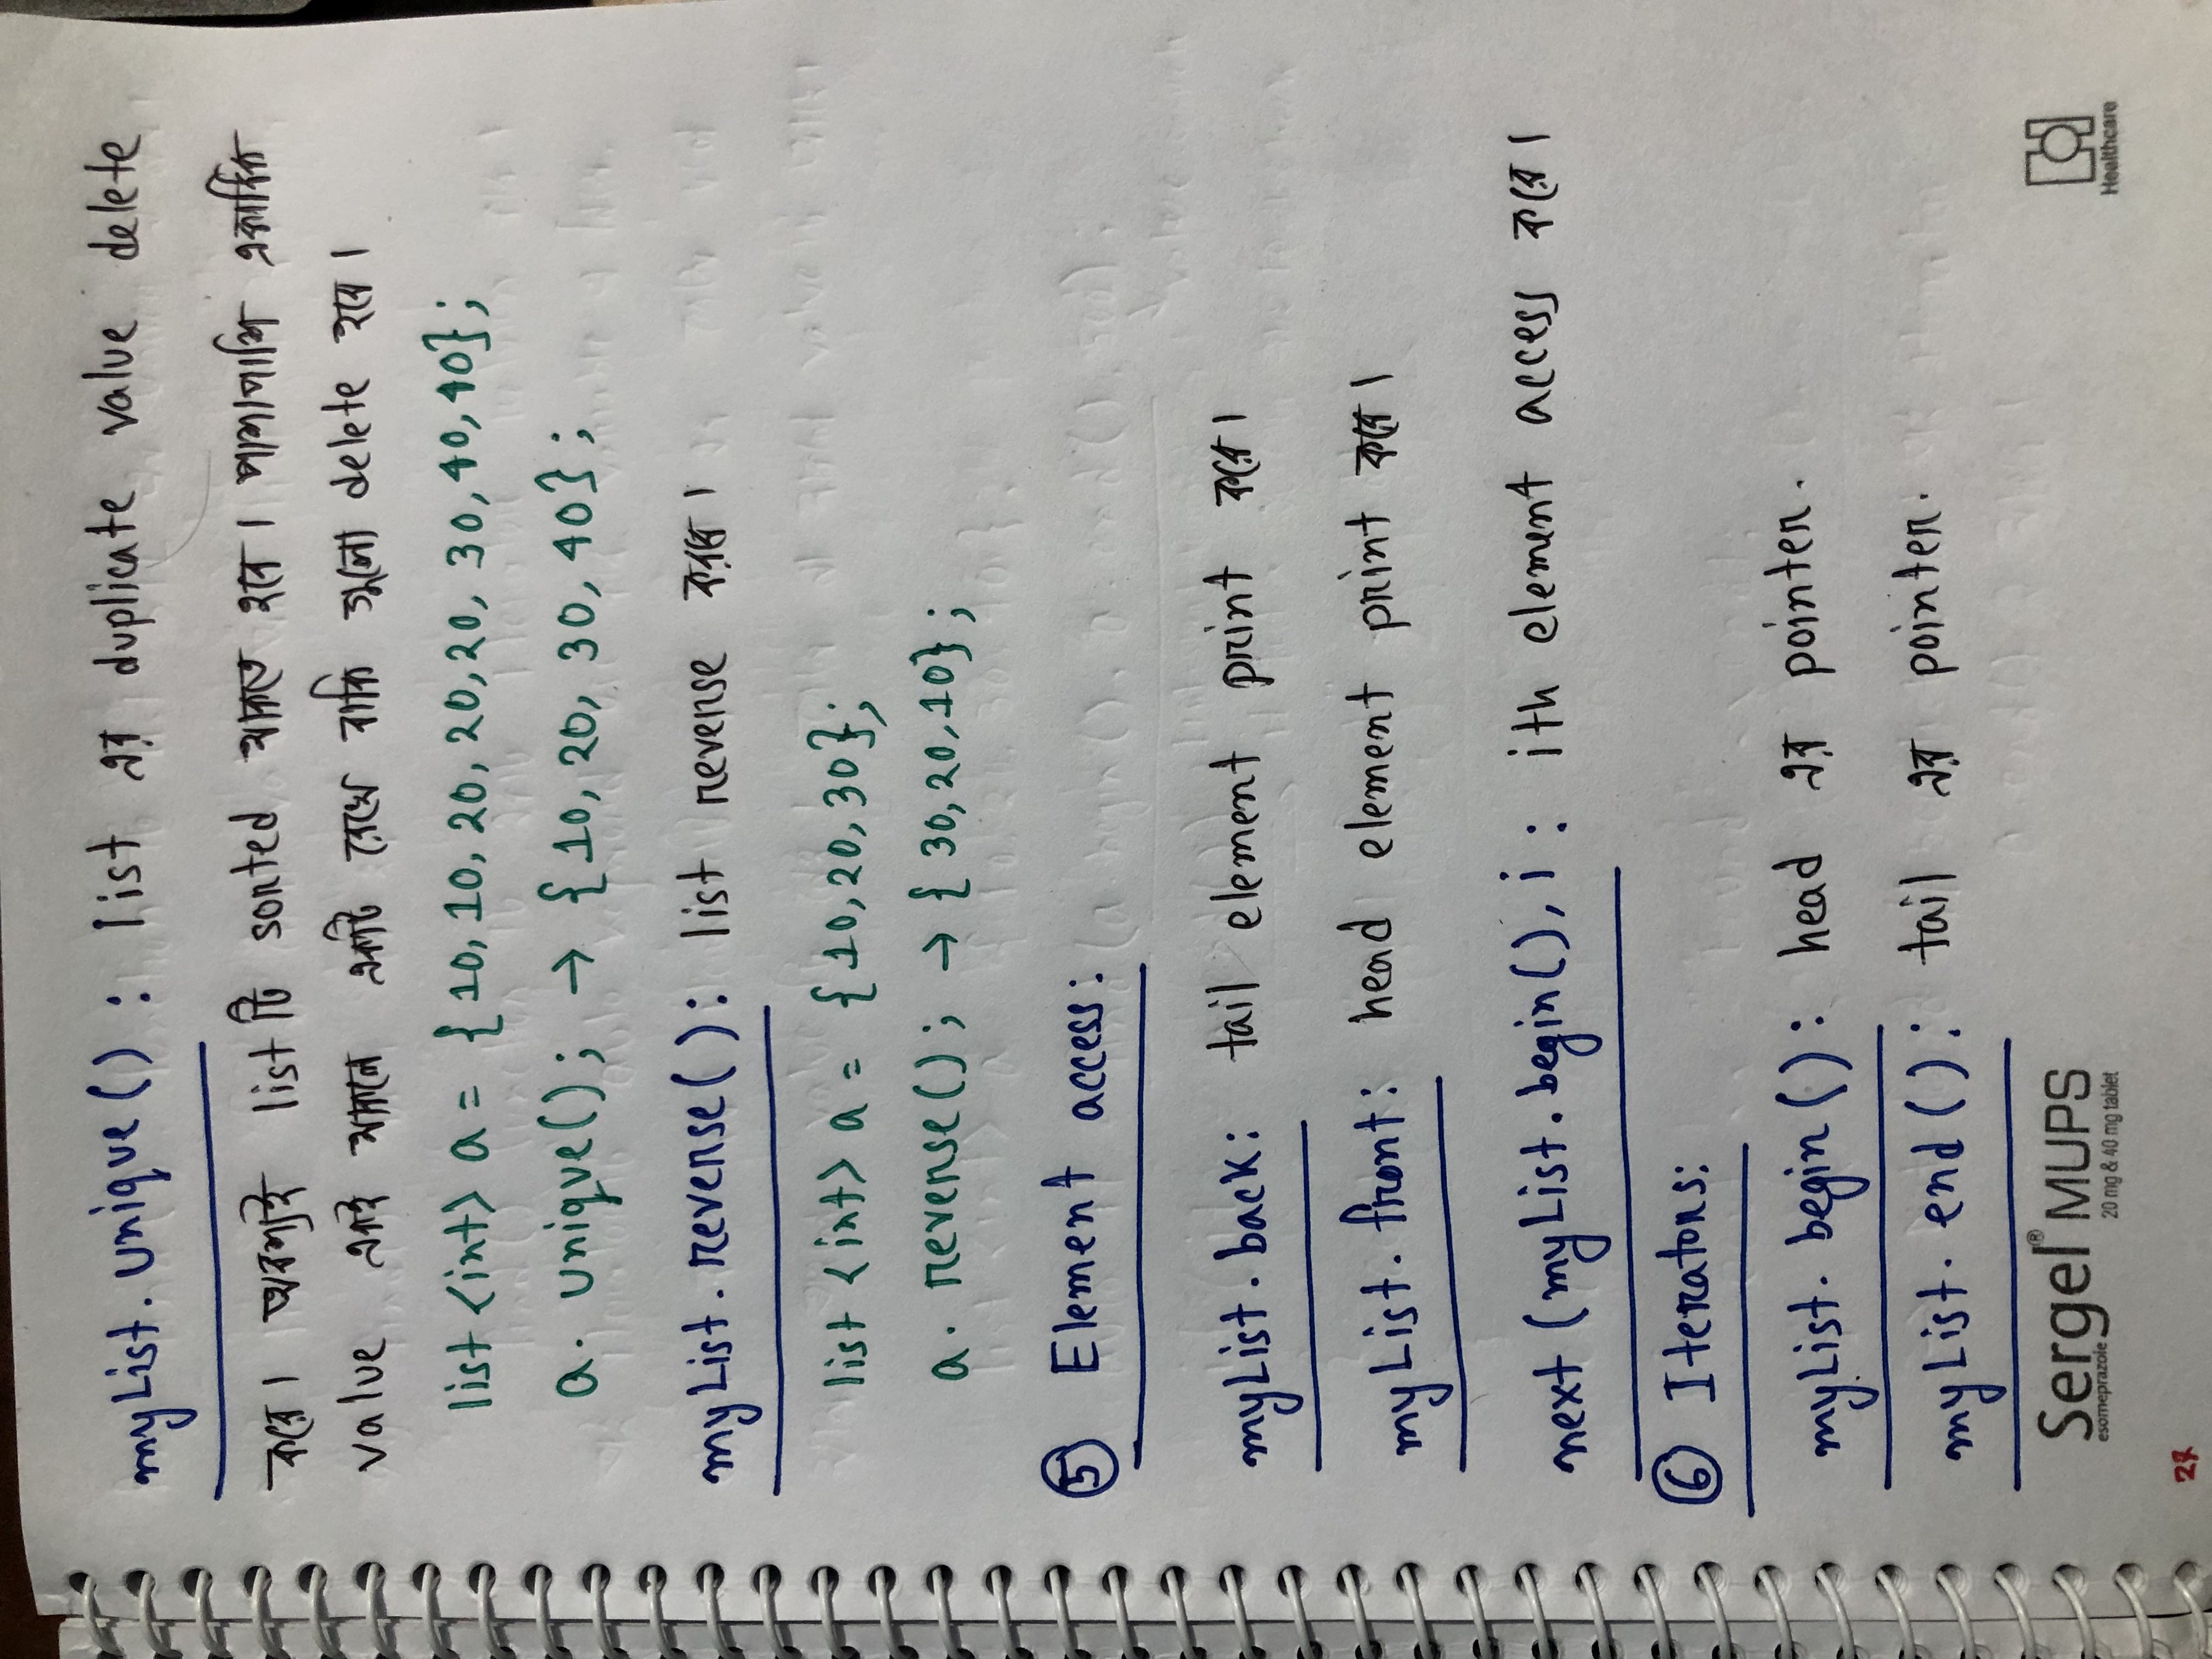 myList. unique() : list এর duplicate value delete
করে। অবশ্যই list টি sorted থাকতে হবে। পাশাপাশি একাধিক
value একই থাকলে একটি রেখে বাকি গুলো delete হবে।
list <int> a = { 10, 10, 20, 20, 20, 30, 40, 40};
a. unique(); → { 10, 20, 30, 40};
myList. reverse(): list reverse করে।
list <int> a = { 10, 20, 30};
a. reverse(); → { 30, 20, 10};
⑤ Element access:
myList. back: tail element print করে।
myList. front: head element print করে।
next (myList. begin(), i : ith element access করে।
⑥ Iterators:
myList. begin(): head এর pointer.
myList. end(): tail এর pointer.
Sergel® MUPS
esomeprazole 20 mg & 40 mg tablet
Healthcare